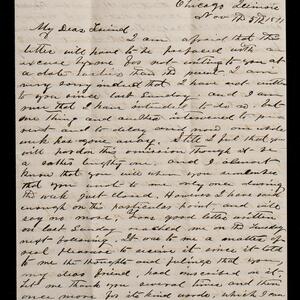 Chicago Illinois
Nov 7th
My Dear Friend
I am afraid that this
letter will have to be prefaced with an
excuse from me for not writing to you at
a date earlier than the present. I am
very sorry indeed that I have not written
to you since last Sunday and I am
sure that I have intended to do so, but
one thing and another intervened to pre-
vent and to delay and now a whole
week has gone away. Still I feel that you
will pardon this omission though it be
a rather lengthy one and I almost
know that you will when you remember
that you wrote to me only one during
the week just closed. However I have said
enough on this particular point, and will
say no more. Your good letter written
on last Sunday reached me on the Tuesday
next following. It was to me a matter of
real pleasure to receive it since it told
to me the thoughts and feelings that you
my dear friend, had inscribed in it.
Let me thank you several times and then
once more for its kind words, wish I am